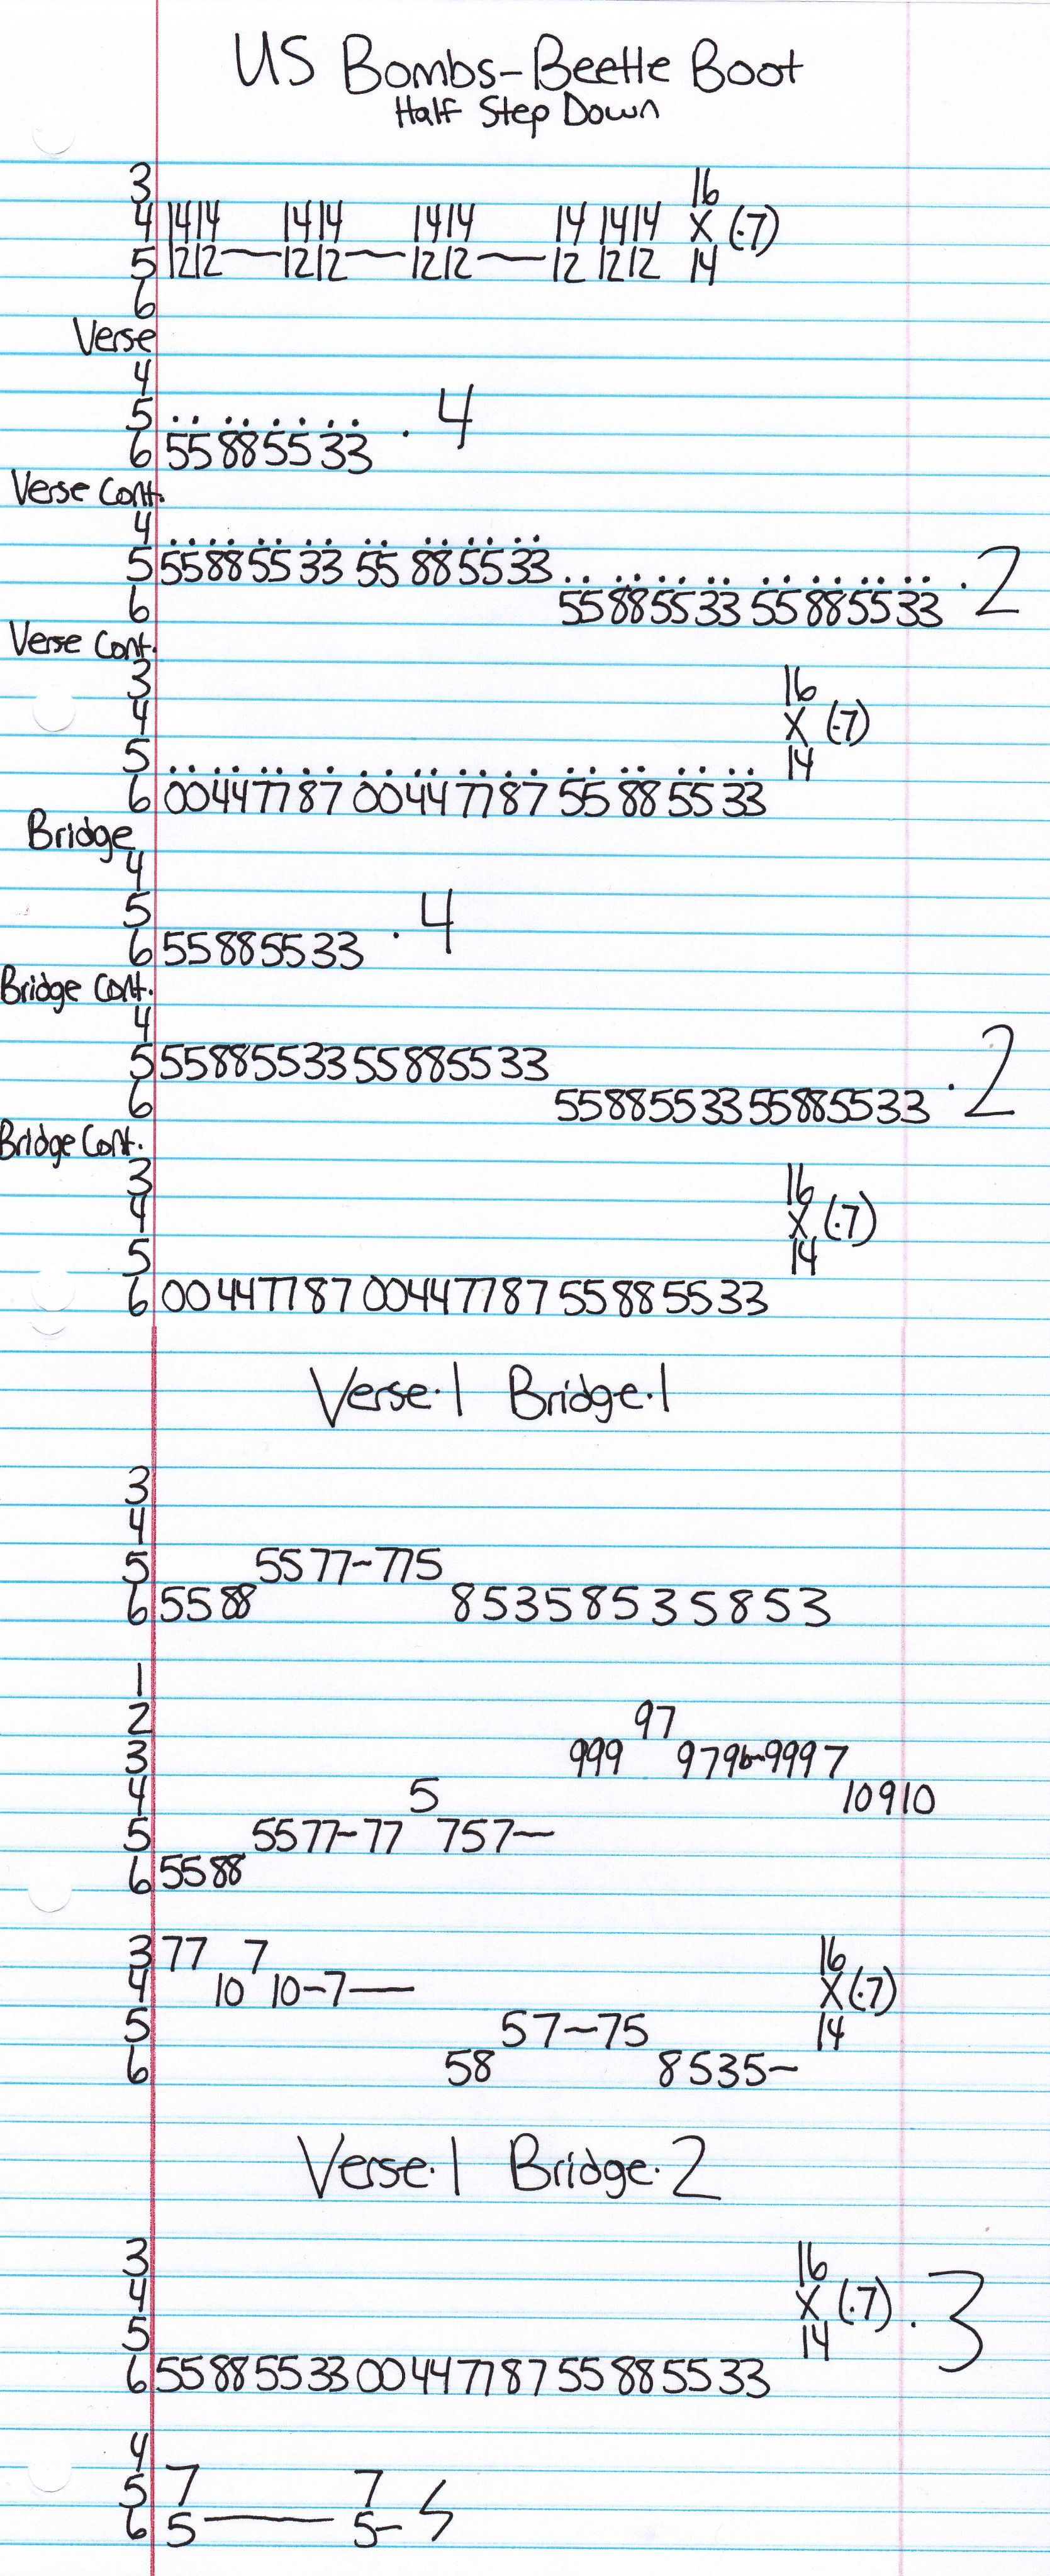 US Bombs-Beetle Boot
Half Step Down
3 16
4 1414 1414 1414 14 1414 X (·7)
5 1212—1212—1212—12 1212 14
6
Verse
4
5 ........ · 4
6 55885533
Verse Cont.
4
5 55885533 55885533
6 5588553355885533 · 2
Verse Cont.
3 16
4 X (·7)
5 14
6 00447787 00447787 55885533
Bridge
4
5
6 55885533 · 4
Bridge Cont.
4
5 5588553355885533
6 5588553355885533 · 2
Bridge Cont.
3 16
4 X (·7)
5 14
6 00447787 00447787 55885533
Verse·1 Bridge·1
3
4
5 5577-775
6 5588 85358535853
1
2 97
3 999 979b~9997
4 5 10910
5 5577-77 757—
6 5588
3 77 7 16
4 10 10-7— X(·7)
5 57~75 14
6 58 8535~
Verse·1 Bridge·2
3 16
4 X (·7) · 3
5 14
6 558855330044778755885533
4
5 7 7
6 5——5-